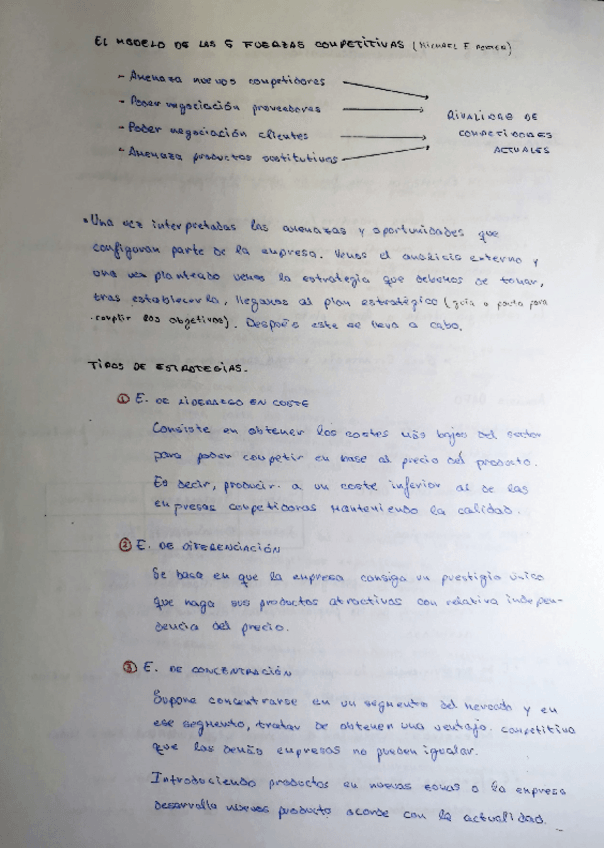 EL MODELO DE LAS 5 FUERZAS COMPETITIVAS (MICHAEL E. PORTER)
- Amenaza nuevos competidores
- Poder negociación proveedores
- Poder negociación clientes
- Amenaza productos sustitutivos
RIVALIDAD DE
COMPETIDORES
ACTUALES
• Una vez interpretadas las amenazas y oportunidades que
configuran parte de la empresa. Vemos el análisis externo y
una vez planteado vemos la estrategia que debemos de tomar,
tras establecerla, llegamos al plan estratégico (guía o pauta para
cumplir los objetivos). Después este se lleva a cabo.
TIPOS DE ESTRATEGIAS.
① E. DE LIDERAZGO EN COSTE
Consiste en obtener los costes más bajos del sector
para poder competir en base al precio del producto.
Es decir, producir a un coste inferior al de las
empresas competidoras manteniendo la calidad.
② E. DE DIFERENCIACIÓN
Se basa en que la empresa consiga un prestigio único
que haga sus productos atractivos con relativa indepen-
dencia del precio.
③ E. DE CONCENTRACIÓN
Supone concentrarse en un segmento del mercado y en
ese segmento, tratar de obtener una ventaja competitiva
que las demás empresas no pueden igualar.
Introduciendo productos en nuevas zonas o la empresa
desarrolla nuevos producto acorde con la actualidad.